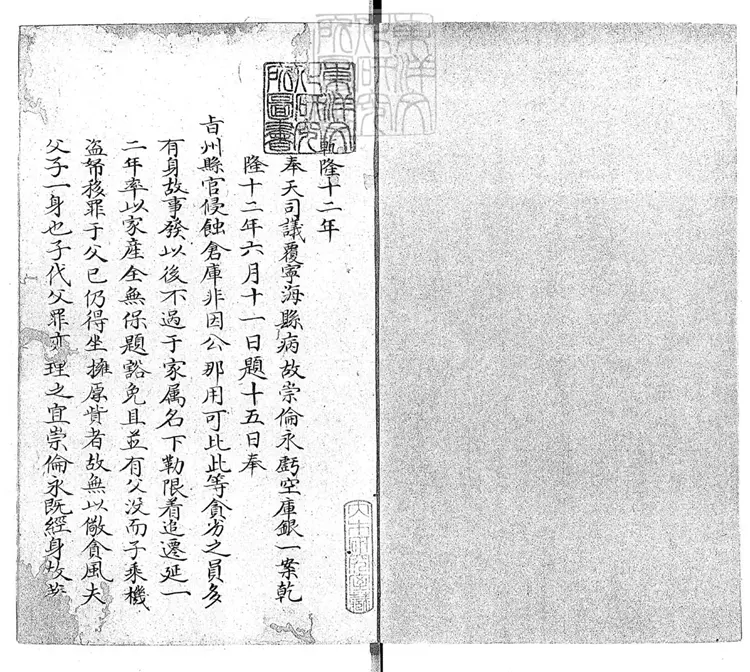 乾隆十二年
奉天司議覆寧海縣病故崇倫永虧空庫銀一案乾
隆十二年六月十一日題十五日奉
旨州縣官侵蝕倉庫非因公那用可比此等貪劣之員多
有身故事發以後不過于家属名下勒限着追遷延一
二年率以家産全無保題豁免且並有父没而子乘機
盜帑移罪于父已仍得坐擁厚貲者故無以儆貪風夫
父子一身也子代父罪亦理之宜崇倫永既經身故
東洋文
化研究
所圖書